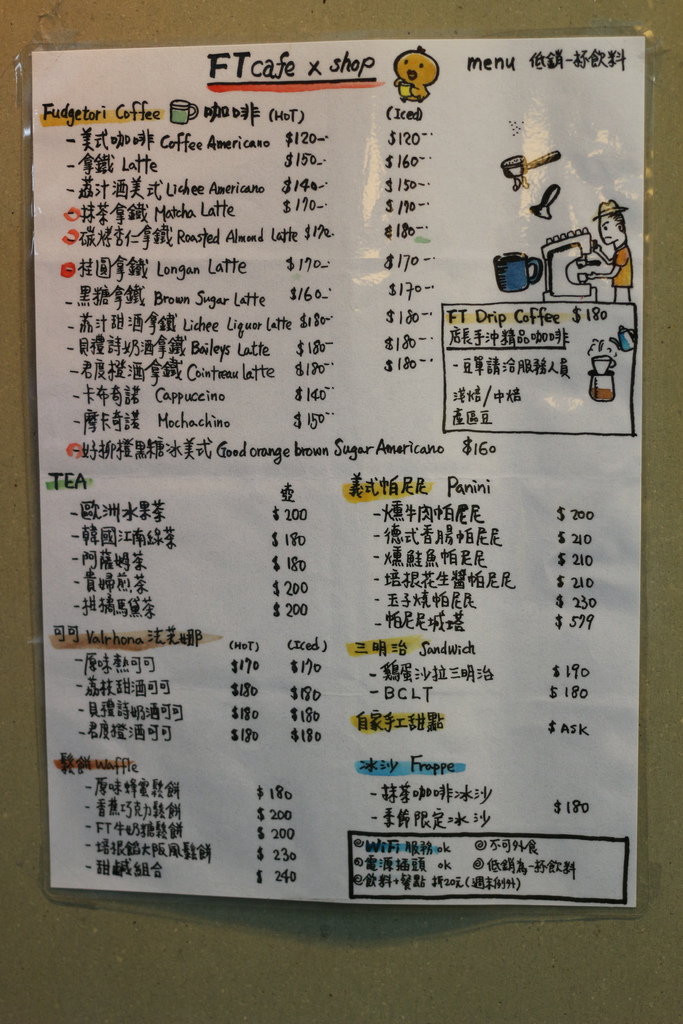 FT cafe x shop menu 低銷一杯飲料
Fudgetori Coffee 咖啡 (HOT) (Iced)
-美式咖啡 Coffee Americano $120-- $120--
-拿鐵 Latte $150-- $160--
-荔汁酒美式 Lichee Americano $140-- $150--
抹茶拿鐵 Matcha Latte $170-- $170--
碳烤杏仁拿鐵 Roasted Almond Latte $170- $180--
-桂圓拿鐵 Longan Latte $170-- $170--
-黑糖拿鐵 Brown Sugar Latte $160-- $170--
-荔汁甜酒拿鐵 Lichee Liquor latte $180-- $180--
-貝禮詩奶酒拿鐵 Baileys Latte $180-- $180--
-君度橙酒拿鐵 Cointreau latte $180-- $180--
-卡布奇諾 Cappuccino $140--
-摩卡奇諾 Mochachino $150--
-好柳橙黑糖冰美式 Good orange brown Sugar Americano $160
FT Drip Coffee $180
店長手沖精品咖啡
-豆單請洽服務人員
淺焙/中焙
產區豆
TEA 壺
-歐洲水果茶 $200
-韓國江南綠茶 $180
-阿薩姆茶 $180
-貴婦煎茶 $200
-柑橘馬黛茶 $200
可可 Valrhona 法芙娜 (HOT) (Iced)
-原味熱可可 $170 $170
-荔枝甜酒可可 $180 $180
-貝禮詩奶酒可可 $180 $180
-君度橙酒可可 $180 $180
鬆餅 Waffle
-原味蜂蜜鬆餅 $180
-香蕉巧克力鬆餅 $200
-FT牛奶糖鬆餅 $200
-培根館大阪風鬆餅 $230
-甜鹹組合 $240
義式帕尼尼 Panini
-燻牛肉帕尼尼 $200
-德式香腸帕尼尼 $210
-燻鮭魚帕尼尼 $210
-培根花生醬帕尼尼 $210
-玉子燒帕尼尼 $230
-帕尼尼城塔 $579
三明治 Sandwich
-雞蛋沙拉三明治 $190
-BCLT $180
自家手工甜點 $ASK
冰沙 Frappe
-抹茶咖啡冰沙
-季節限定冰沙 $180
◎WiFi 服務 ok ◎不可外食
◎電源插頭 ok ◎低銷為一杯飲料
◎飲料+餐點 折20元(週末例外)